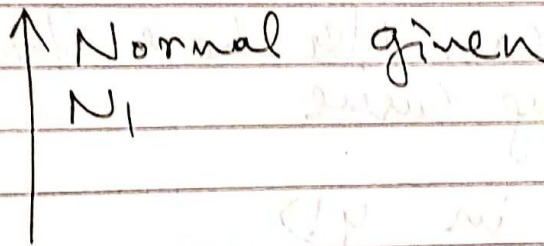 Normal given
N1